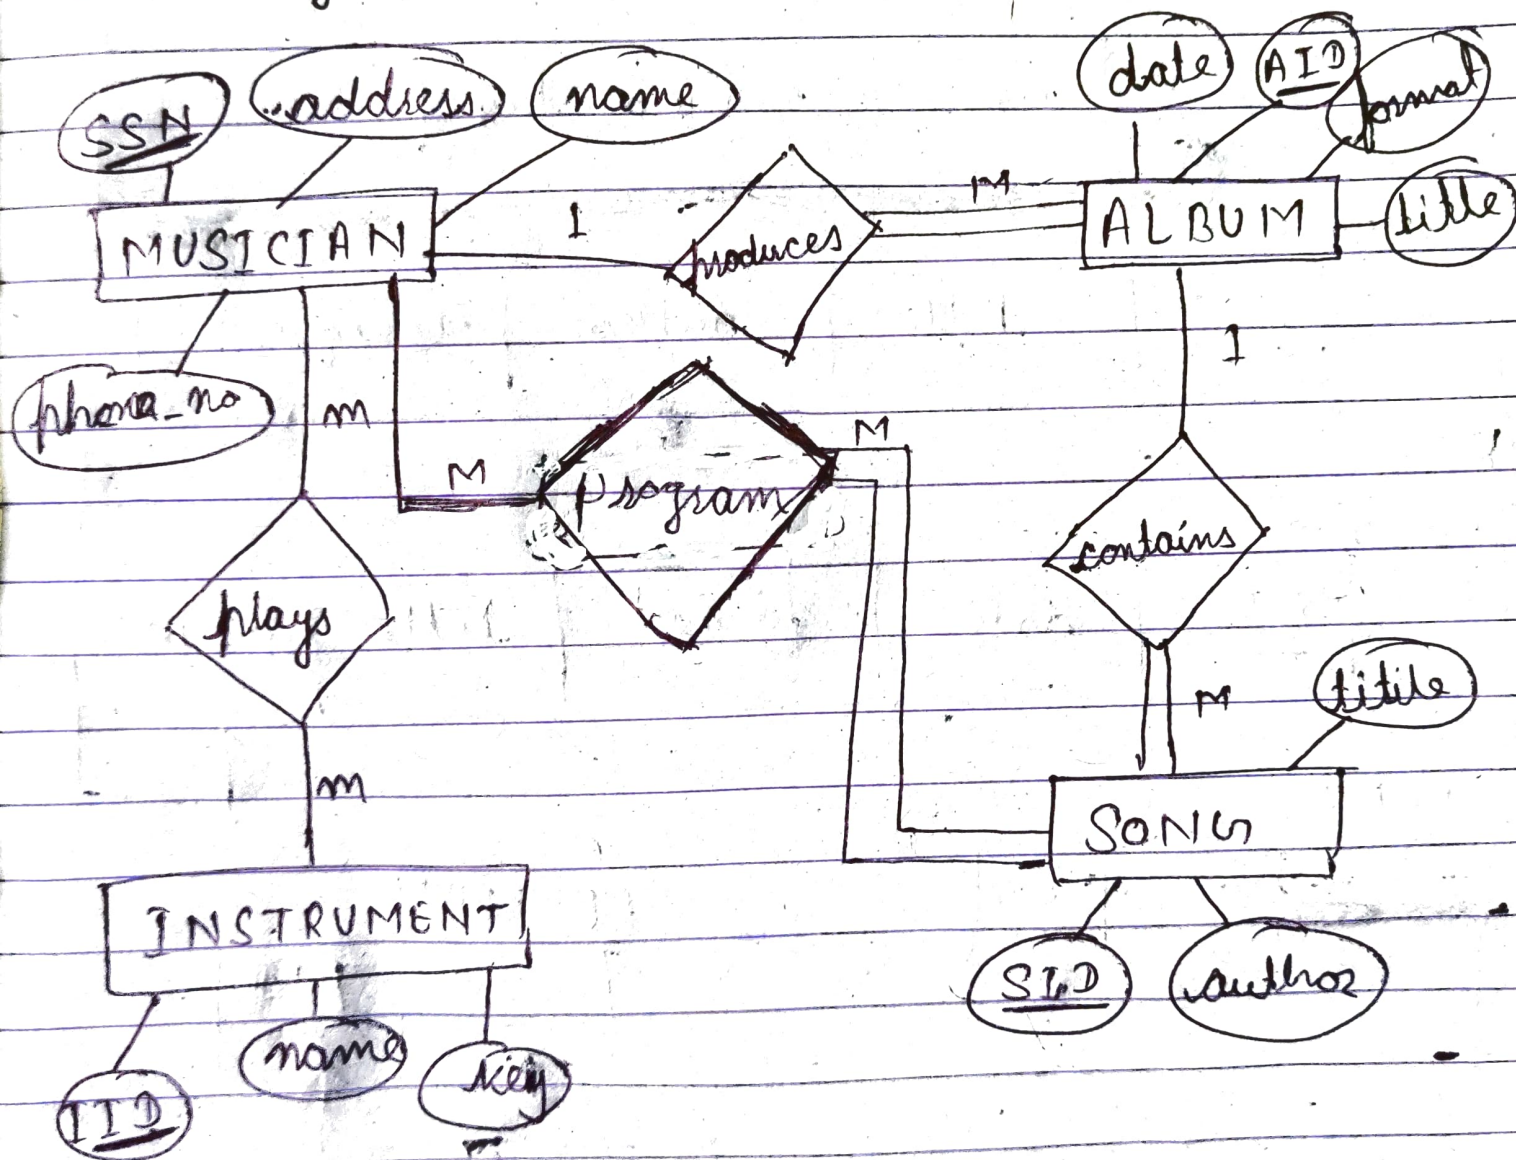 SSN
address
name
date
AID
format
title
MUSICIAN
1
produces
M
ALBUM
phone_no
m
M
program
M
1
contains
plays
m
M
titile
SONG
INSTRUMENT
SID
author
IID
name
key